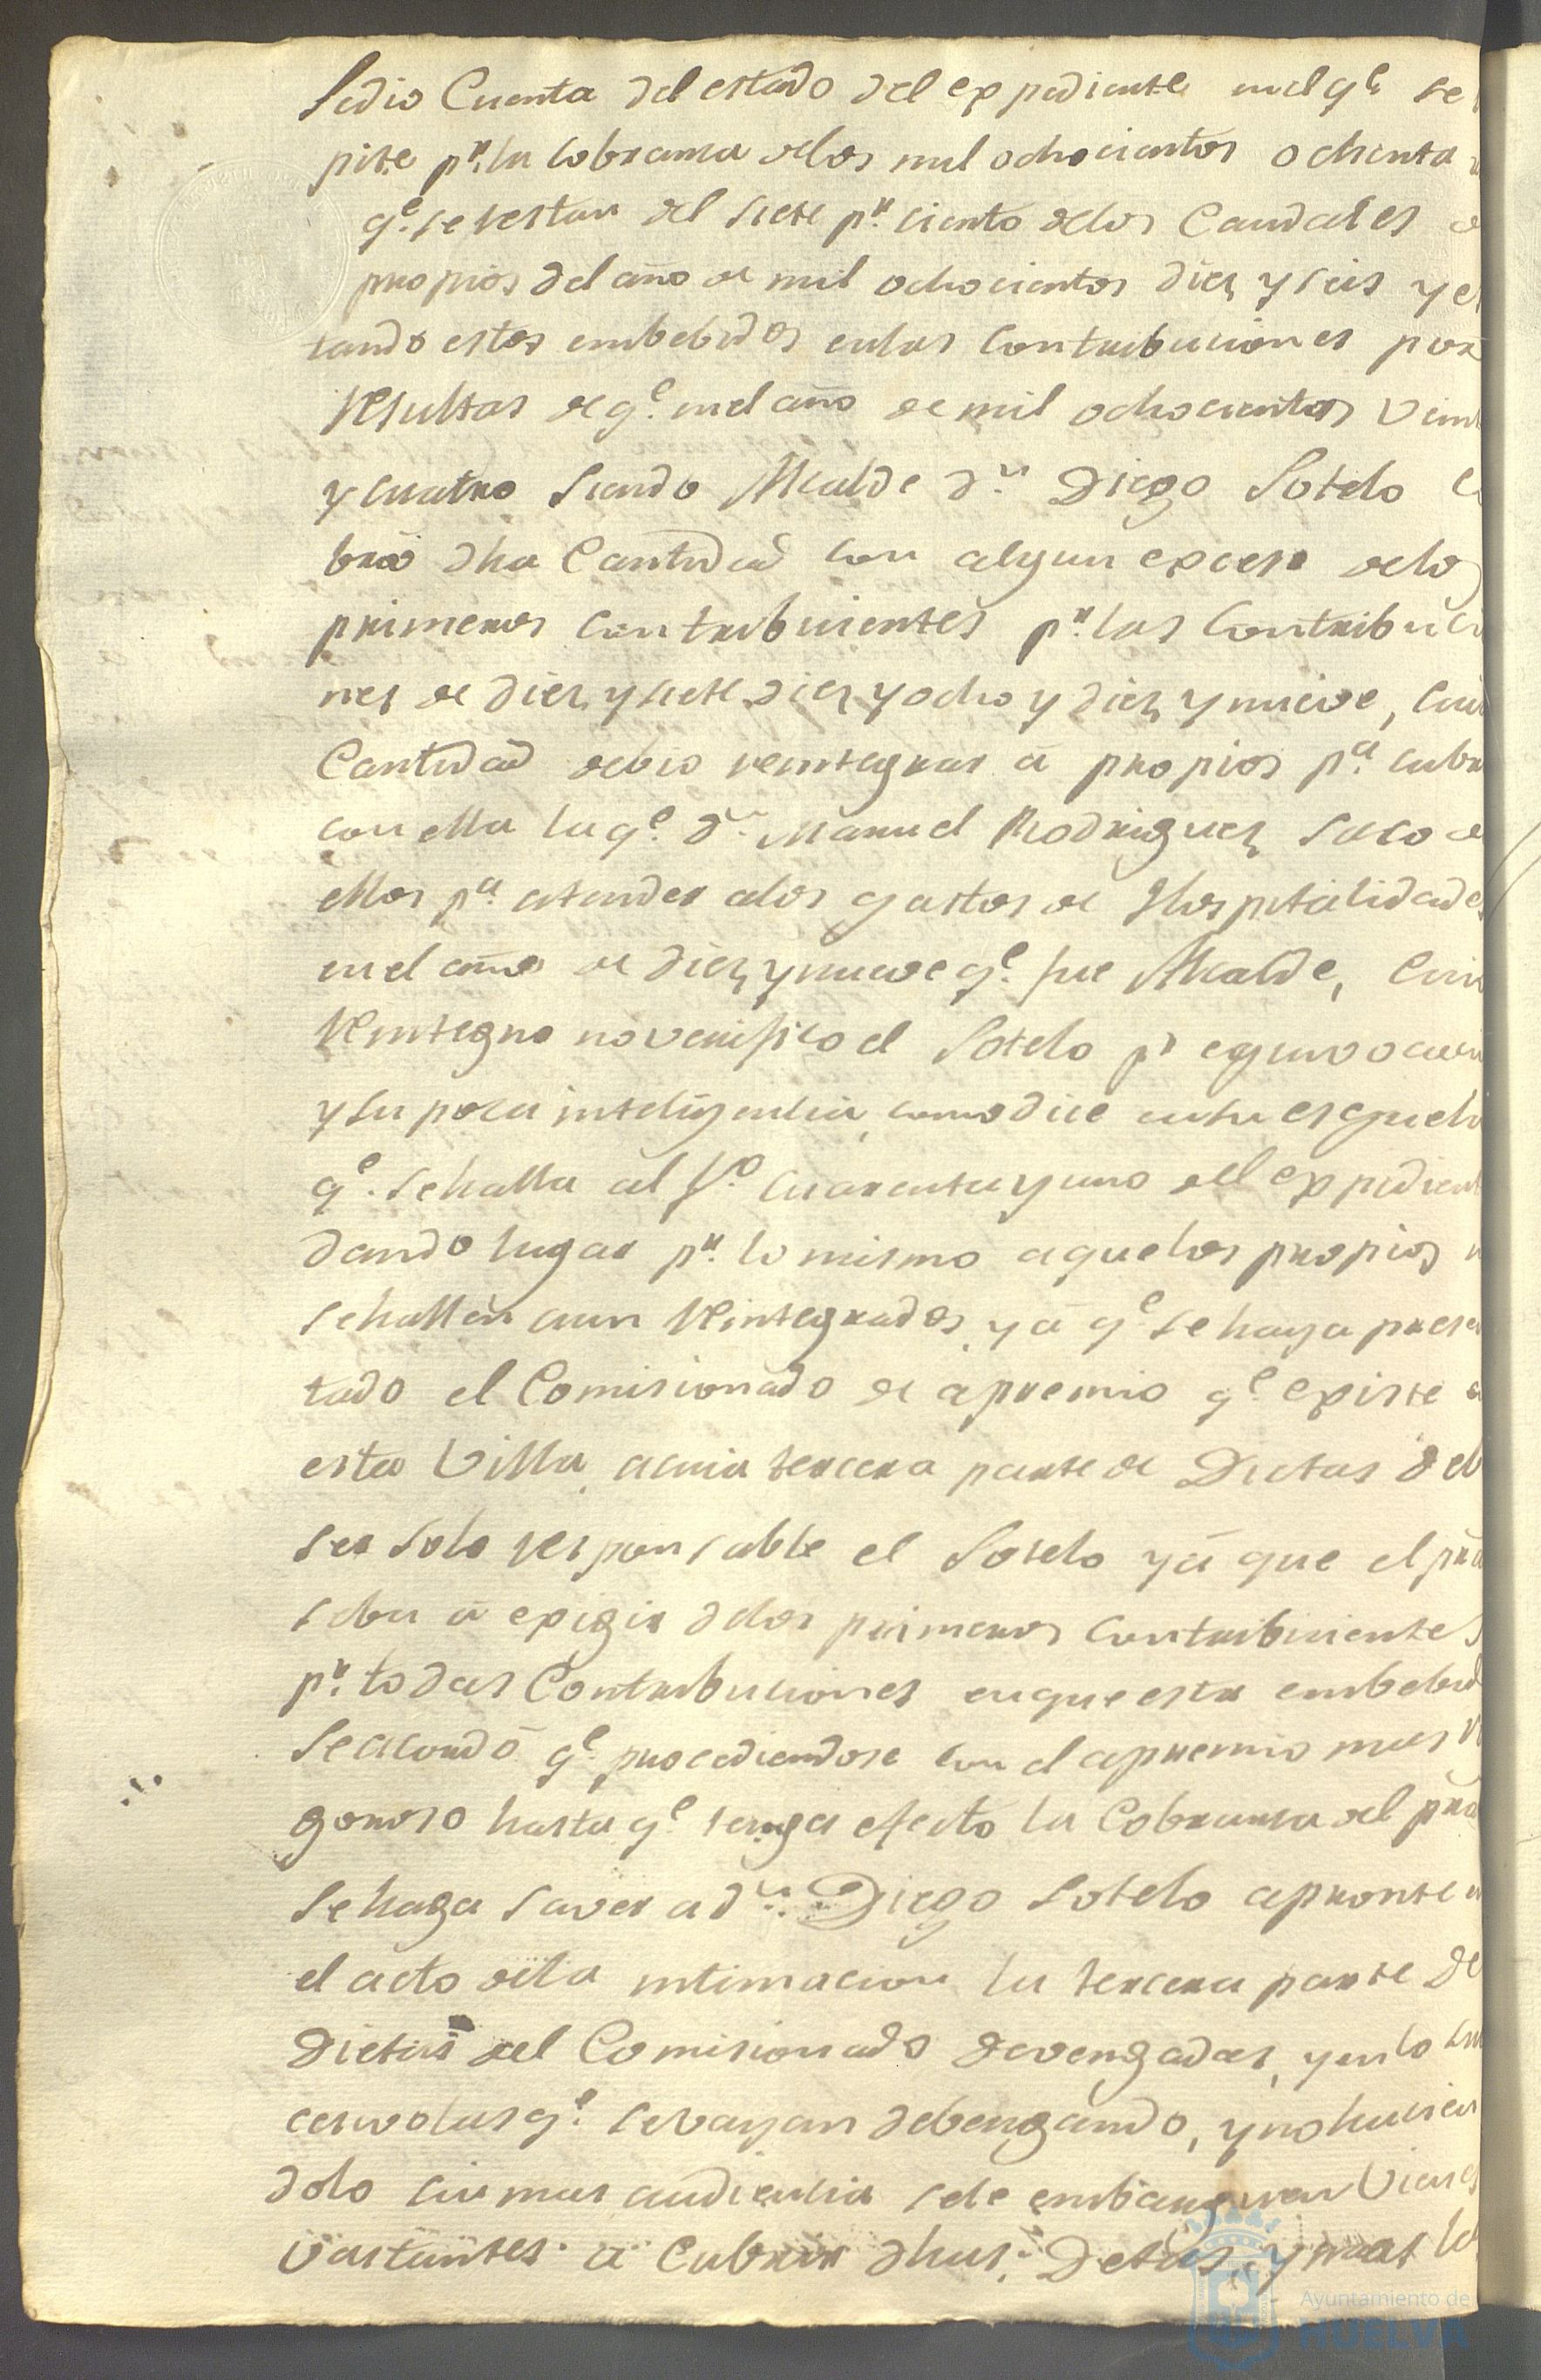 Sedio Cuenta del estado del expediente enel qe. se
pite pr. la cobranza delos mil ochocientos ochenta
qe. se restan del siete pr. ciento delos Caudales
propios del año de mil ochocientos diez y seis y es
tando estos embebidos enlas Contribuciones por
resultas de qe. enel año de mil ochocientos vein
y cuatro siendo Alcalde Dn. Diego Sotelo
bró dha Cantidad con algun exceso delos
primeros contribuientes pr. las Contribucio
nes de diez y siete diez y ocho y diez y nueve, cuia
Cantidad debio reintegrar a propios pa. cubri
con ella la qe. Dn. Manuel Rodriguez saco
ellos pa. atender alos gastos de Hospitalidades
enel año de diez y nueve qe. fue Alcalde, cuio
reintegro no verifico el Sotelo pr equivocacion
y su poca inteligencia, como dice ensu esquela
qe. se halla al fo. cuarenta y uno del expedient
dando lugar pr. lo mismo aquelos propios
se hallen aun reintegrados, ya qe se haya presen
tado el Comisionado de apremio qe. existe
esta Villa, acuia tercera parte de Dietas deb
ser solo responsable el Sotelo yá que el prâ
seba a exigir delos primeros contribuientes
pr. todas Contribuciones enque esta embebid
Se acordó qe. procediendose con el apremio mas
goroso hasta qe. tenga efecto la Cobranza del pra
se haga saver a Dn. Diego Sotelo apronte
el acto dela intimacion la tercera parte de
Dietas del Comisionado devengadas, y enlo su
cesivo las qe. se vayan debengando, y no hacien
dolo sin mas audiencia sele embarguen Vienes
vastantes a Cubrir dhas. Dietas, y mas
Ayuntamiento de
HUELVA